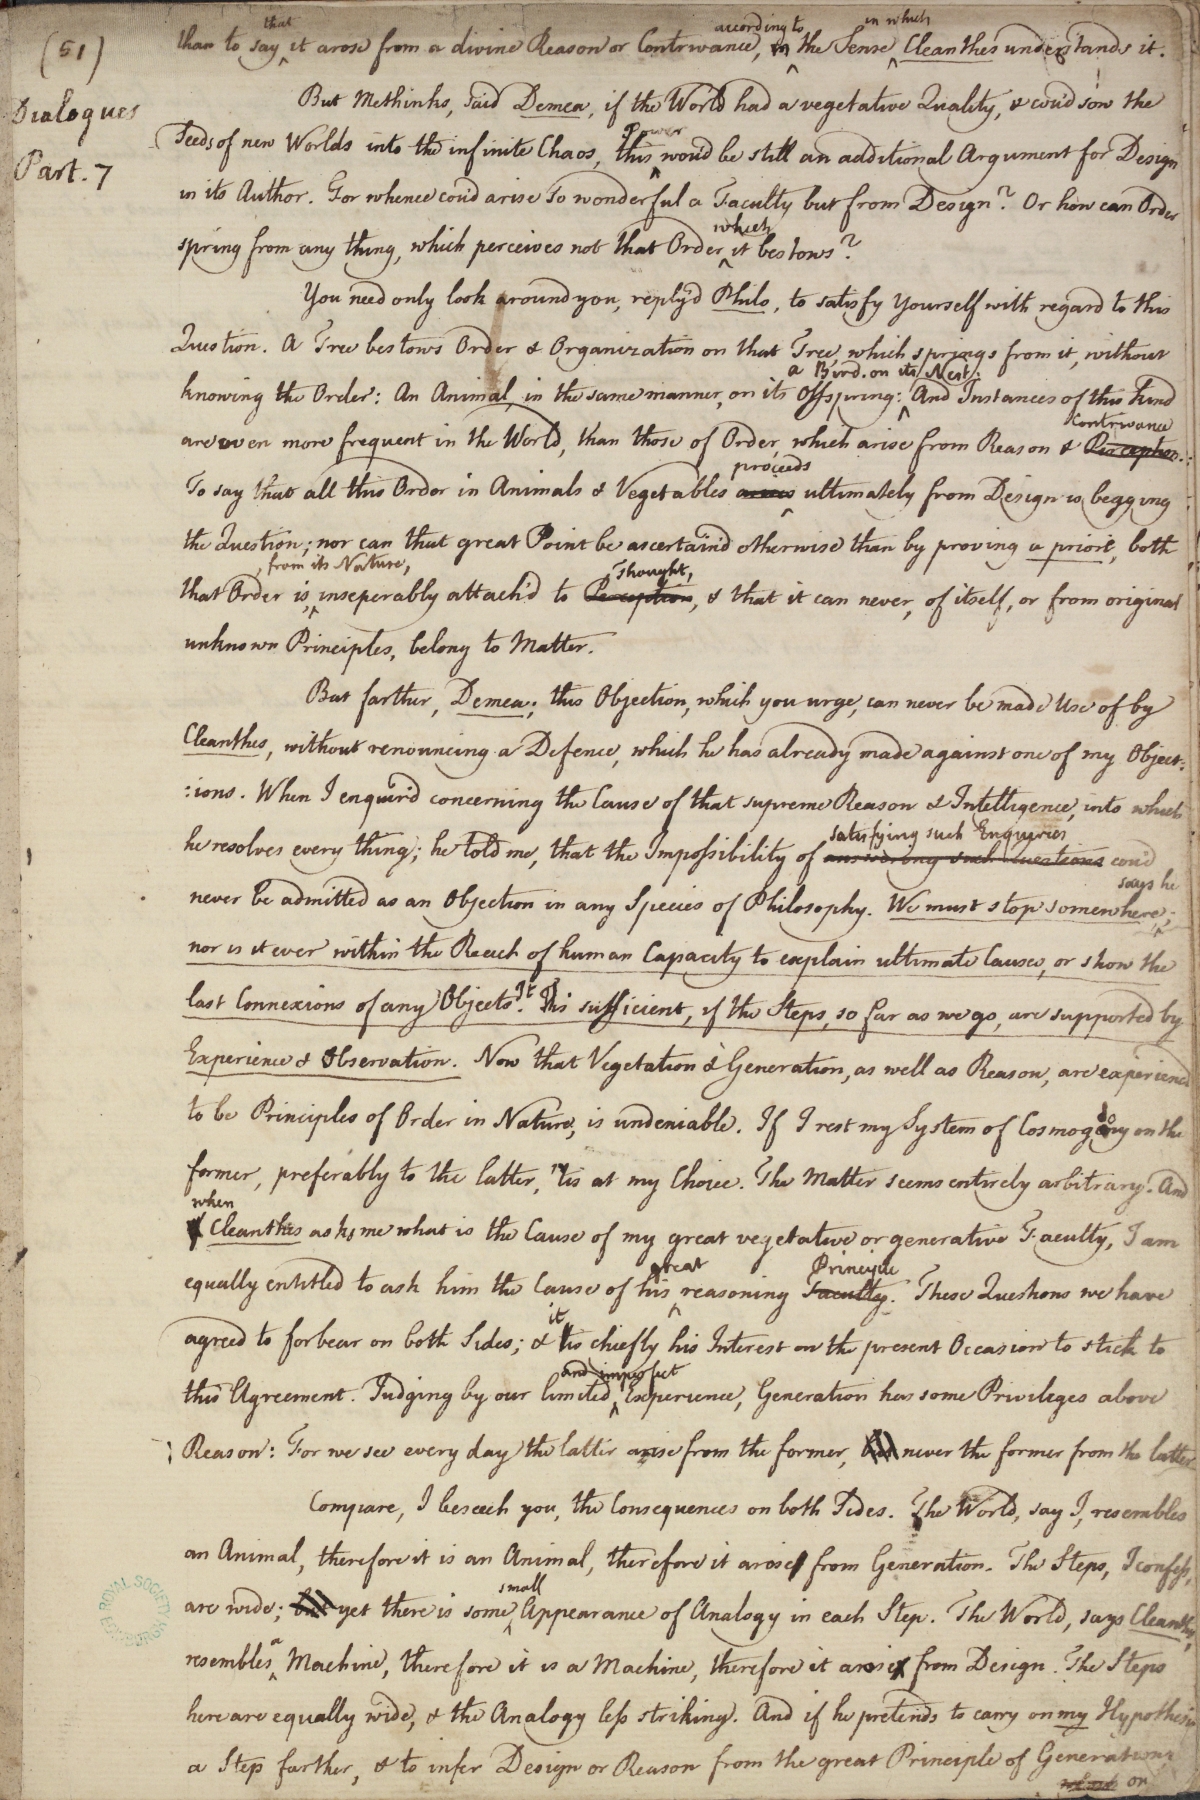 (51)
Dialogues
Part. 7
than to say that it arose from a divine Reason or Contrivance, according to the Sense in which Cleanthes understands it.
But Methinks, said Demea, if the World had a vegetative Quality, & coud sow the
Seeds of new Worlds into the infinite Chaos, this Power woud be still an additional Argument for Design
in its Author. For whence coud arise so wonderful a Faculty but from Design? Or how can Order
spring from any thing, which perceives not that Order which it bestows?
You need only look around you, reply'd Philo, to satisfy Yourself with regard to this
Question. A Tree bestows Order & Organization on that Tree, which springs from it, without
knowing the Order: An Animal, in the same manner, on its Offspring: a Bird, on its Nest: And Instances of this kind
are even more frequent in the World, than those of Order, which arise from Reason & Perception. Contrivance
To say that all this Order in Animals & Vegetables arises proceeds ultimately from Design is begging
the Question; nor can that great Point be ascertain'd otherwise than by proving a priori, both
that Order is, from its Nature, inseperably attach'd to Perception Thought, & that it can never, of itself, or from original
unknown Principles, belong to Matter.
But farther, Demea; this Objection, which you urge, can never be made Use of by
Cleanthes, without renouncing a Defence, which he has already made against one of my Object:
:ions. When I enquir'd concerning the Cause of that supreme Reason & Intelligence, into which
he resolves every thing; he told me, that the Impossibility of answering such Questions satisfying such Enquiries coud
never be admitted as an Objection in any Species of Philosophy. We must stop somewhere, says he;
nor is it ever within the Reach of human Capacity to explain ultimate Causes, or show the
last Connexions of any Objects. It is sufficient, if the Steps, so far as we go, are supported by
Experience & Observation. Now that Vegetation & Generation, as well as Reason, are experienc'd
to be Principles of Order in Nature, is undeniable. If I rest my System of Cosmogony on the
former, preferably to the latter, 'tis at my Choice. The Matter seems entirely arbitrary. And
when Cleanthes asks me what is the Cause of my great vegetative or generative Faculty, I am
equally entitled to ask him the Cause of his great reasoning Faculty Principle. These Questions we have
agreed to forbear on both Sides; & it is chiefly his Interest on the present Occasion to stick to
this Agreement. Judging by our limited and imperfect Experience, Generation has some Privileges above
Reason: For we see every day the latter arise from the former, but never the former from the latter.
Compare, I beseech you, the Consequences on both Sides. The World, say I, resembles
an Animal, therefore it is an Animal, therefore it arose from Generation. The Steps, I confess,
are wide; but yet there is some small Appearance of Analogy in each Step. The World, says Cleanthes,
resembles a Machine, therefore it is a Machine, therefore it arose from Design. The Steps
here are equally wide, & the Analogy less striking. And if he pretends to carry on my Hypothesis
a Step farther, & to infer Design or Reason from the great Principle of Generation,
on
ROYAL SOCIETY
EDINBURGH